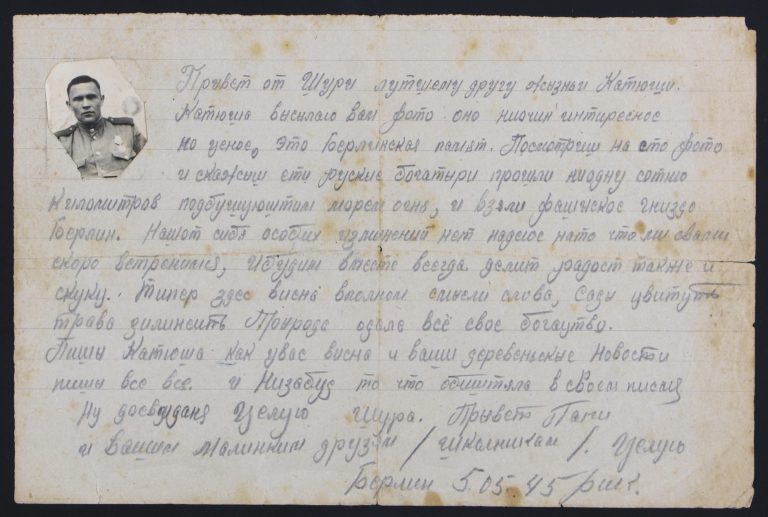 Привет от Шури лутшему другу жызньи Катюши.
Катюша высылаю вам фото оно ниочин интиресное
но ценое, это Берлинская памят. Посмотриш на ето фото
и скажиш ети руские богатыри прошли ниодну сотню
километров подбушующтим морем огня, и взяли фашыское гниздо
Берлин. Нащот сибя особых изминений нет надеюс нато что мы свами
скоро встренимся, Ибудим вместе всегда делит радост также и
скуку. Типер здес висна вполном смысли слова, Сады цвитуть
трава зилинеить Природа одала всё свое богаутво.
Пишы Катюша как увас висна и ваши деревеньские новости
пишы все все. и Низабуд то что обиштяла в своем писмя
Ну досвидания Целую Шура. Прывет Папи
и вашим малинким друзям / школникам /. Целую
Берлин 5.05.45